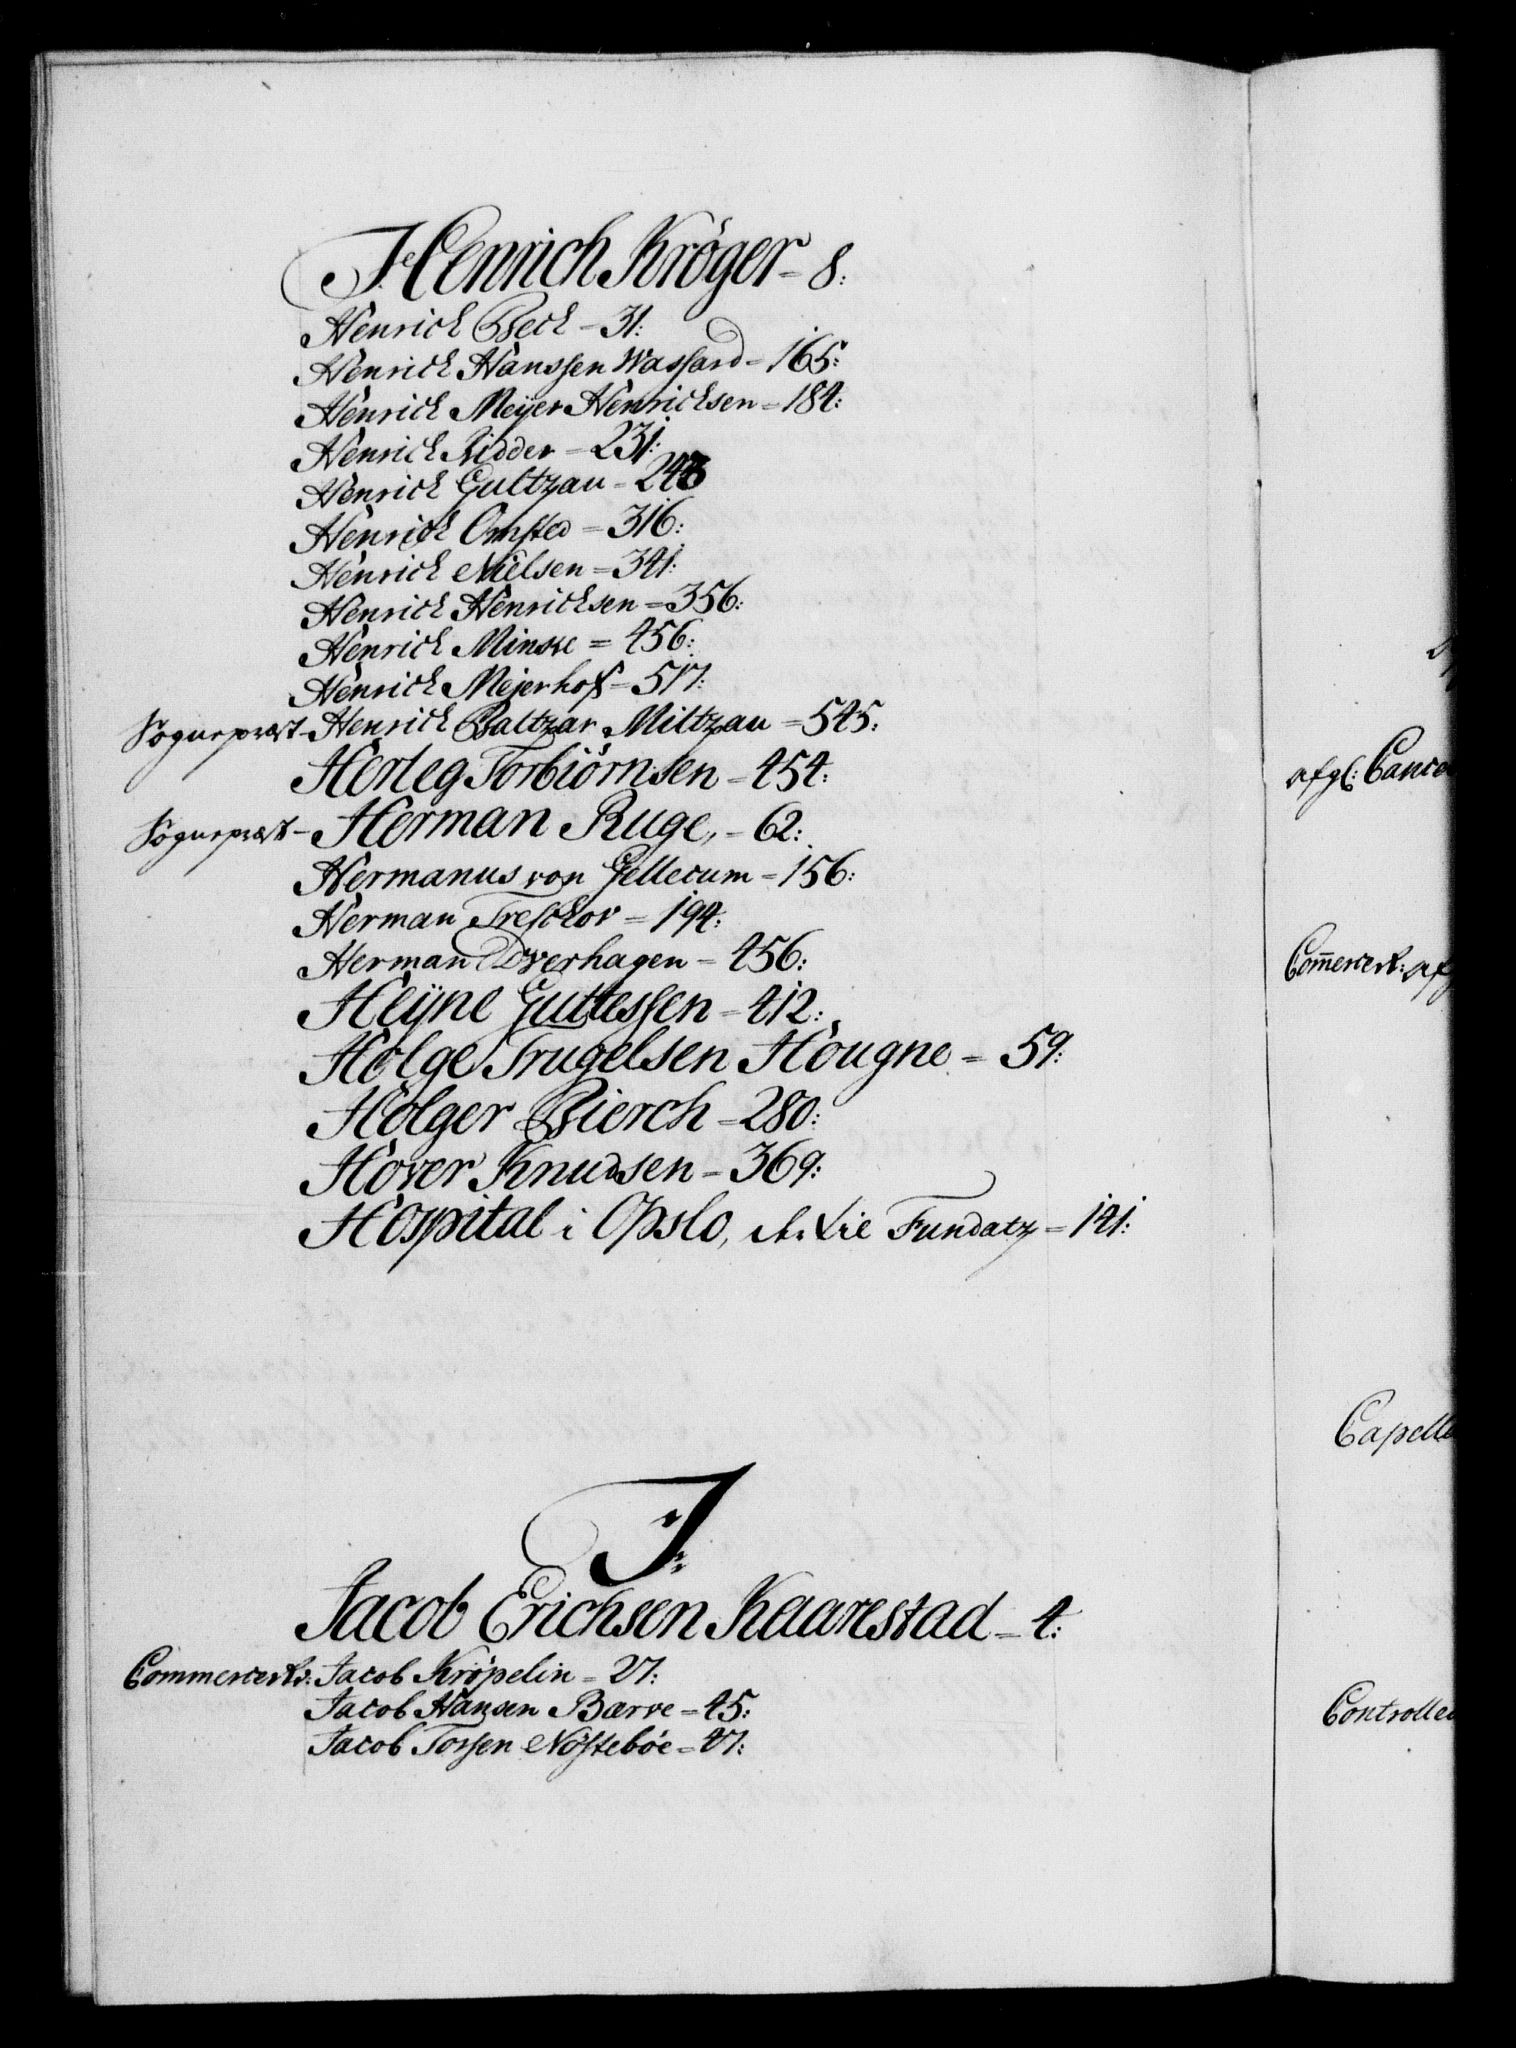 Henrich Krøger = 8:
Henrich Beck = 31:
Henrich Hanssen Wassard = 165:
Henrich Meyer Henrichsen = 184:
Henrich Ridder = 231:
Henrich Gultzau = 248
Henrich Omsted = 316:
Henrich Nielsen = 341:
Henrich Henrichsen = 356:
Henrich Minsve = 456:
Henrich Mejerhoff = 517:
Sogneprest - Henrich Baltzar Miltzau = 545:
Herleg Torbiørnsen = 454:
Sogneprest - Herman Ruge, = 62:
Hermanus von Gellecum = 156:
Herman Treschov = 194:
Herman Overhagen = 456:
Heÿne Guttessen = 412:
Holge Trugelsen Hougne = 59:
Holger Bierch = 280:
Hover Knudsen = 369:
Hospital i Opslo, Fundatz = 141:
J:
Jacob Erichsen Kaarestad = 4:
Commercer: Jacob Krøpelin = 27:
Jacob Hansen Bærve = 45:
Jacob Torsen Nøstebøe = 47:
afgl: Cance
Com̄ercer: af
Capelle
Controlleu